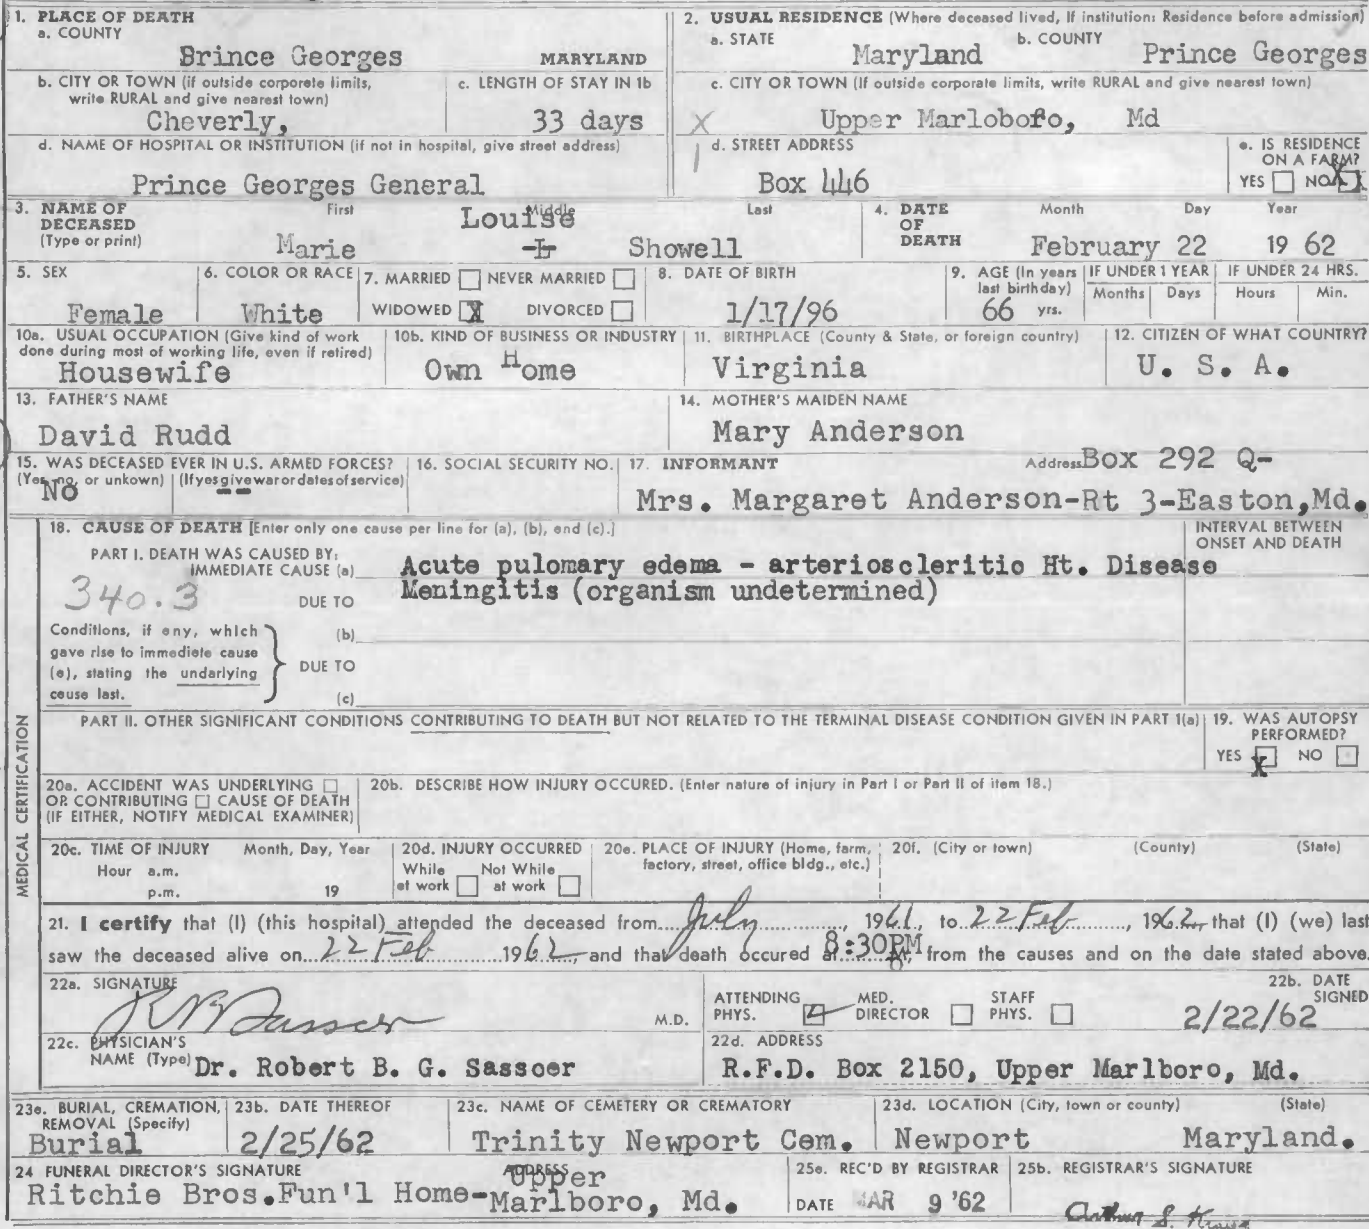 1. PLACE OF DEATH
a. COUNTY
Brince Georges MARYLAND
2. USUAL RESIDENCE (Where deceased lived, If institution: Residence before admission)
a. STATE b. COUNTY
Maryland Prince Georges
b. CITY OR TOWN (if outside corporate limits, write RURAL and give nearest town)
Cheverly,
c. LENGTH OF STAY IN 1b
33 days
c. CITY OR TOWN (If outside corporate limits, write RURAL and give nearest town)
X Upper Marloboro, Md
d. NAME OF HOSPITAL OR INSTITUTION (if not in hospital, give street address)
Prince Georges General
d. STREET ADDRESS
Box 446
e. IS RESIDENCE
ON A FARM?
YES NO X
3. NAME OF
DECEASED
(Type or print)
First Middle Last
Louise
Marie -L- Showell
4. DATE
OF
DEATH
Month Day Year
February 22 19 62
5. SEX
Female
6. COLOR OR RACE
White
7. MARRIED NEVER MARRIED
WIDOWED X DIVORCED
8. DATE OF BIRTH
1/17/96
9. AGE (In years
last birthday)
66 yrs.
IF UNDER 1 YEAR
Months Days
IF UNDER 24 HRS.
Hours Min.
10a. USUAL OCCUPATION (Give kind of work
done during most of working life, even if retired)
Housewife
10b. KIND OF BUSINESS OR INDUSTRY
Own Home
11. BIRTHPLACE (County & State, or foreign country)
Virginia
12. CITIZEN OF WHAT COUNTRY?
U. S. A.
13. FATHER'S NAME
David Rudd
14. MOTHER'S MAIDEN NAME
Mary Anderson
15. WAS DECEASED EVER IN U.S. ARMED FORCES?
(Yes, no, or unkown) (If yes give war or dates of service)
No --
16. SOCIAL SECURITY NO.
17. INFORMANT Address Box 292 Q-
Mrs. Margaret Anderson-Rt 3-Easton,Md.
MEDICAL CERTIFICATION
18. CAUSE OF DEATH [Enter only one cause per line for (a), (b), and (c).]
INTERVAL BETWEEN
ONSET AND DEATH
PART I. DEATH WAS CAUSED BY:
IMMEDIATE CAUSE (a) Acute pulomary edema - arterioscleritic Ht. Disease
340.3 DUE TO Meningitis (organism undetermined)
Conditions, if any, which
gave rise to immediate cause
(a), stating the underlying
cause last.
(b)
DUE TO
(c)
PART II. OTHER SIGNIFICANT CONDITIONS CONTRIBUTING TO DEATH BUT NOT RELATED TO THE TERMINAL DISEASE CONDITION GIVEN IN PART 1(a)
19. WAS AUTOPSY
PERFORMED?
YES X NO
20a. ACCIDENT WAS UNDERLYING
OR CONTRIBUTING CAUSE OF DEATH
(IF EITHER, NOTIFY MEDICAL EXAMINER)
20b. DESCRIBE HOW INJURY OCCURED. (Enter nature of injury in Part I or Part II of item 18.)
20c. TIME OF INJURY Month, Day, Year
Hour a.m.
p.m. 19
20d. INJURY OCCURRED
While Not While
at work at work
20e. PLACE OF INJURY (Home, farm,
factory, street, office bldg., etc.)
20f. (City or town) (County) (State)
21. I certify that (I) (this hospital) attended the deceased from July, 1961, to 22 Feb, 1962, that (I) (we) last
saw the deceased alive on 22 Feb 1962, and that death occured at 8:30PM, from the causes and on the date stated above.
22a. SIGNATURE
R B Sasscer M.D.
ATTENDING
PHYS.
MED.
DIRECTOR
STAFF
PHYS.
22b. DATE
SIGNED
2/22/62
22c. PHYSICIAN'S
NAME (Type) Dr. Robert B. G. Sassoer
22d. ADDRESS
R.F.D. Box 2150, Upper Marlboro, Md.
23a. BURIAL, CREMATION,
REMOVAL (Specify)
Burial
23b. DATE THEREOF
2/25/62
23c. NAME OF CEMETERY OR CREMATORY
Trinity Newport Cem.
23d. LOCATION (City, town or county) (State)
Newport Maryland.
24 FUNERAL DIRECTOR'S SIGNATURE ADDRESS
Ritchie Bros.Fun'l Home-Upper
Marlboro, Md.
25a. REC'D BY REGISTRAR
DATE MAR 9 '62
25b. REGISTRAR'S SIGNATURE
Arthur S.